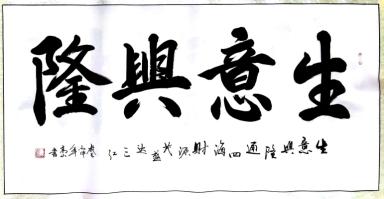 生意興隆
生意興隆通四海財源茂盛達三江